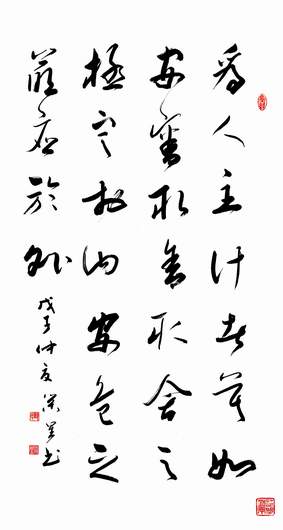 為人主计者莫如
安審取舍取舍之
極定於内安危之
萌應於外
戊子仲夏梁书